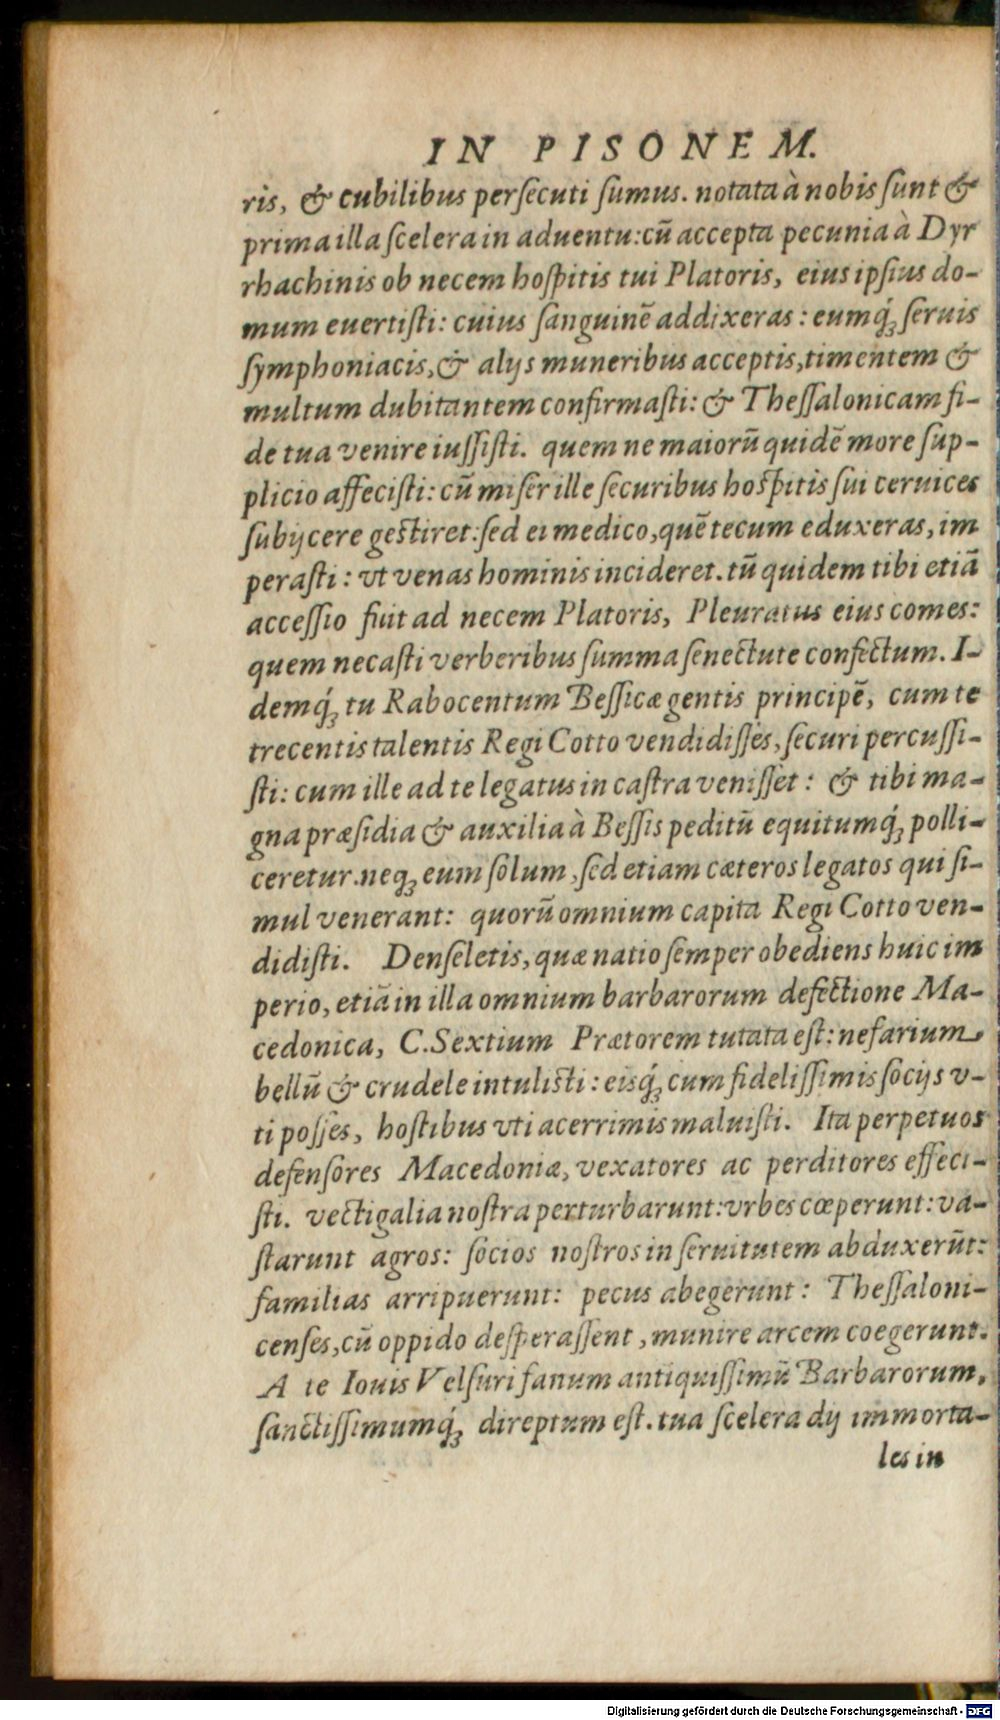 IN PISONEM.
ris, & cubilibus persecuti sumus. notata à nobis sunt &
prima illa scelera in aduentu: cū accepta pecunia à Dyr
rhachinis ob necem hospitis tui Platoris, eius ipsius do-
mum euertisti: cuius sanguinē addixeras: eumq́; seruis
symphoniacis, & alijs muneribus acceptis, timentem &
multum dubitantem confirmasti: & Thessalonicam fi-
de tua venire iussisti. quem ne maiorū quidē more sup-
plicio affecisti: cū miser ille securibus hospitis sui ceruices
subijcere gestiret: sed ei medico, quē tecum eduxeras, im
perasti: vt venas hominis incideret. tū quidem tibi etiā
accessio fuit ad necem Platoris, Pleuratus eius comes:
quem necasti verberibus summa senectute confectum. I-
demq́; tu Rabocentum Bessicæ gentis principē, cum te
trecentis talentis Regi Cotto vendidisses, securi percussi-
sti: cum ille ad te legatus in castra venisset: & tibi ma-
gna præsidia & auxilia à Bessis peditū equitumq́; polli-
ceretur. neq; eum solum, sed etiam cæteros legatos qui si-
mul venerant: quorū omnium capita Regi Cotto ven-
didisti. Denseletis, quæ natio semper obediens huic im
perio, etiā in illa omnium barbarorum defectione Ma-
cedonica, C. Sextium Prætorem tutata est: nefarium
bellū & crudele intulisti: eisq́; cum fidelissimis socijs v-
ti posses, hostibus vti acerrimis maluisti. Ita perpetuos
defensores Macedoniæ, vexatores ac perditores effeci-
sti. vectigalia nostra perturbarunt: vrbes cœperunt: va-
starunt agros: socios nostros in seruitutem abduxerūt:
familias arripuerunt: pecus abegerunt: Thessaloni-
censes, cū oppido desperassent, munire arcem coegerunt.
A te Iouis Velsuri fanum antiquissimū Barbarorum,
sanctissimumq́; direptum est. tua scelera dij immorta-
les in
Digitalisierung gefördert durch die Deutsche Forschungsgemeinschaft - DFG